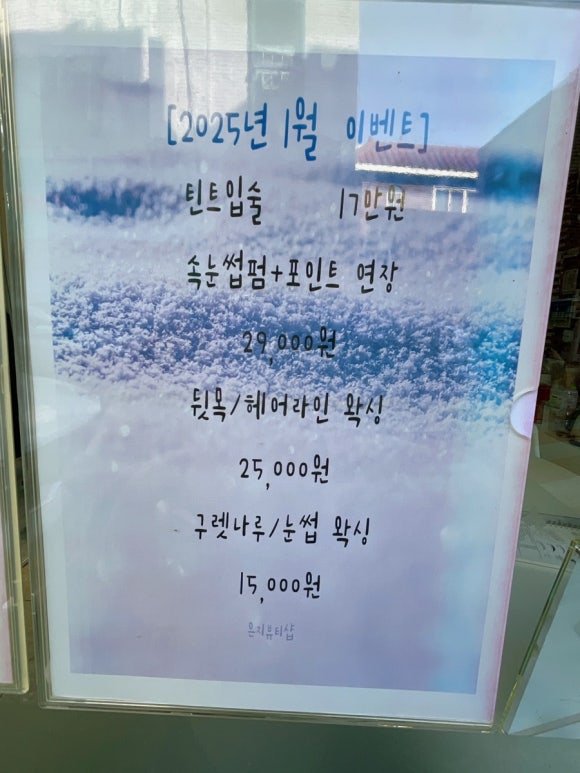 [2025년 1월 이벤트]
틴트입술 17만원
속눈썹펌+포인트 연장
29,000원
뒷목/헤어라인 왁싱
25,000원
구렛나루/눈썹 왁싱
15,000원
은지뷰티샵